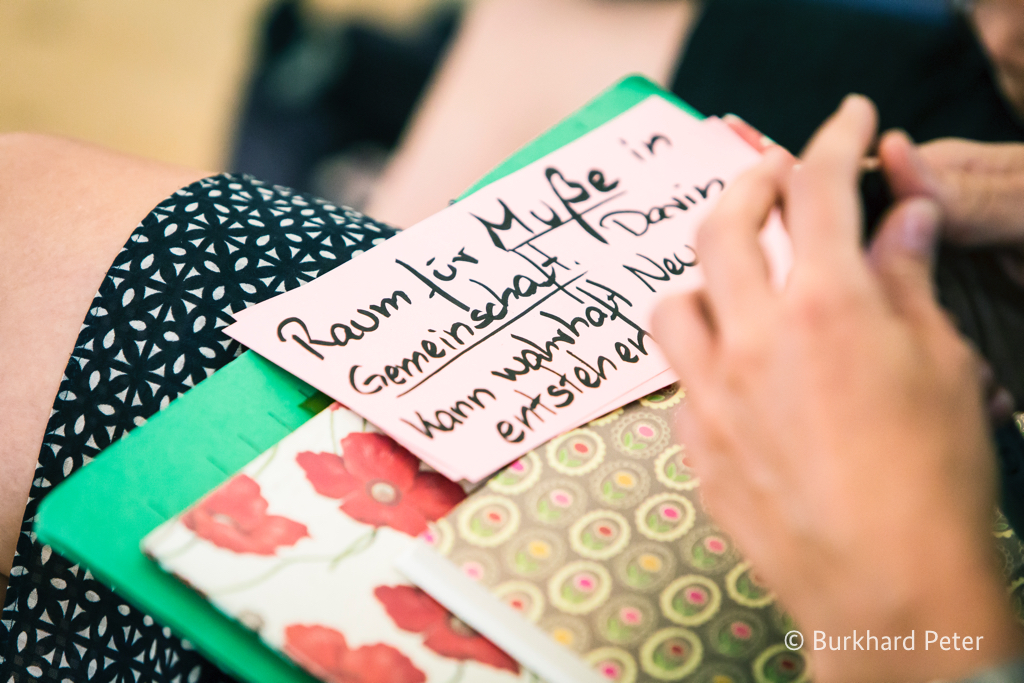 Raum für Muße in
Gemeinschaft. Darin
kann wahrhaft Neu
entstehen
© Burkhard Peter